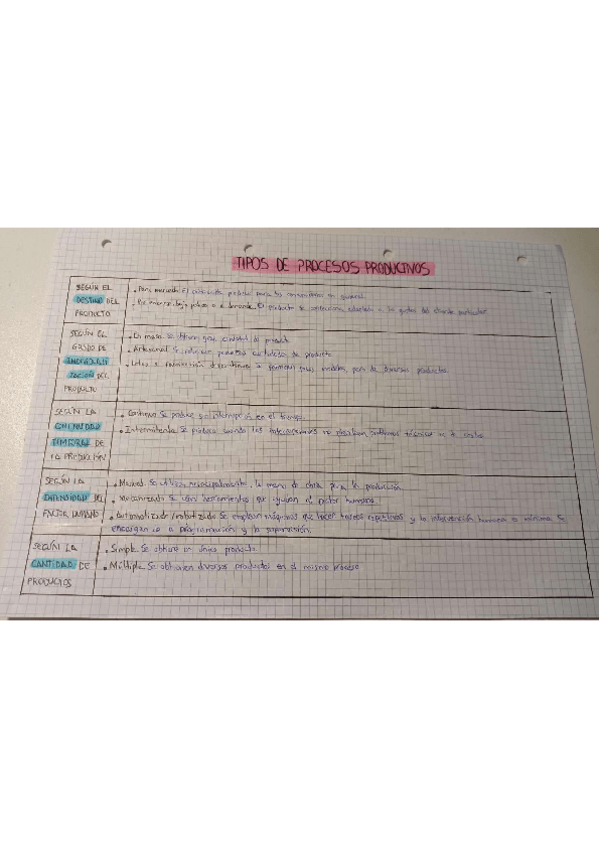 TIPOS DE PROCESOS PRODUCTIVOS
SEGÚN EL
DESTINO DEL
PRODUCTO
• Para mercado. El producto para los consumidores en general
• Por encargo, bajo pedido o a demanda. El producto se confecciona adaptado a los gustos del cliente particular
SEGÚN EL
GRADO DE
DEL
PRODUCTO
• En masa. Se obtiene gran cantidad de producto
• Artesanal. Se pequeña de producto
• Lotes o modelos, pero de diversos productos
SEGÚN LA
TEMPORAL DE
LA PRODUCCIÓN
• Continuo. Se produce sin interrupción en el tiempo
• Intermitente. Se produce cuando las interrupciones no técnicos ni de costes
SEGÚN LA
INTENSIDAD DEL
FACTOR HUMANO
• Manual. Se utiliza principalmente, la mano de obra para la producción
• Mecanizado. Se usan herramientas que ayudan al factor humano
• Automatizado/robotizado. Se emplean máquinas que hacen tareas repetitivas y la intervención humana es mínima. Se
encargan de la programación y la supervisión.
SEGÚN LA
CANTIDAD DE
PRODUCTOS
• Simple. Se obtiene un único producto
• Múltiple. Se obtienen diversos productos en el mismo proceso